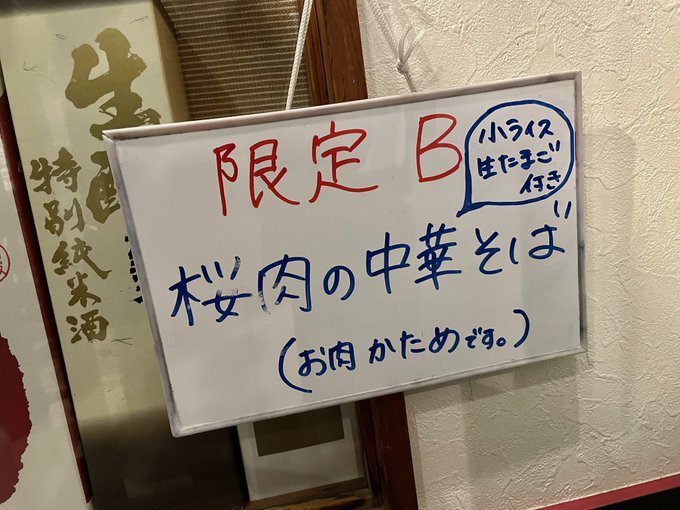 限定 B
小ライス
生たまご
付き
桜肉の中華そば
(お肉かためです。)
生酛
特別純米酒